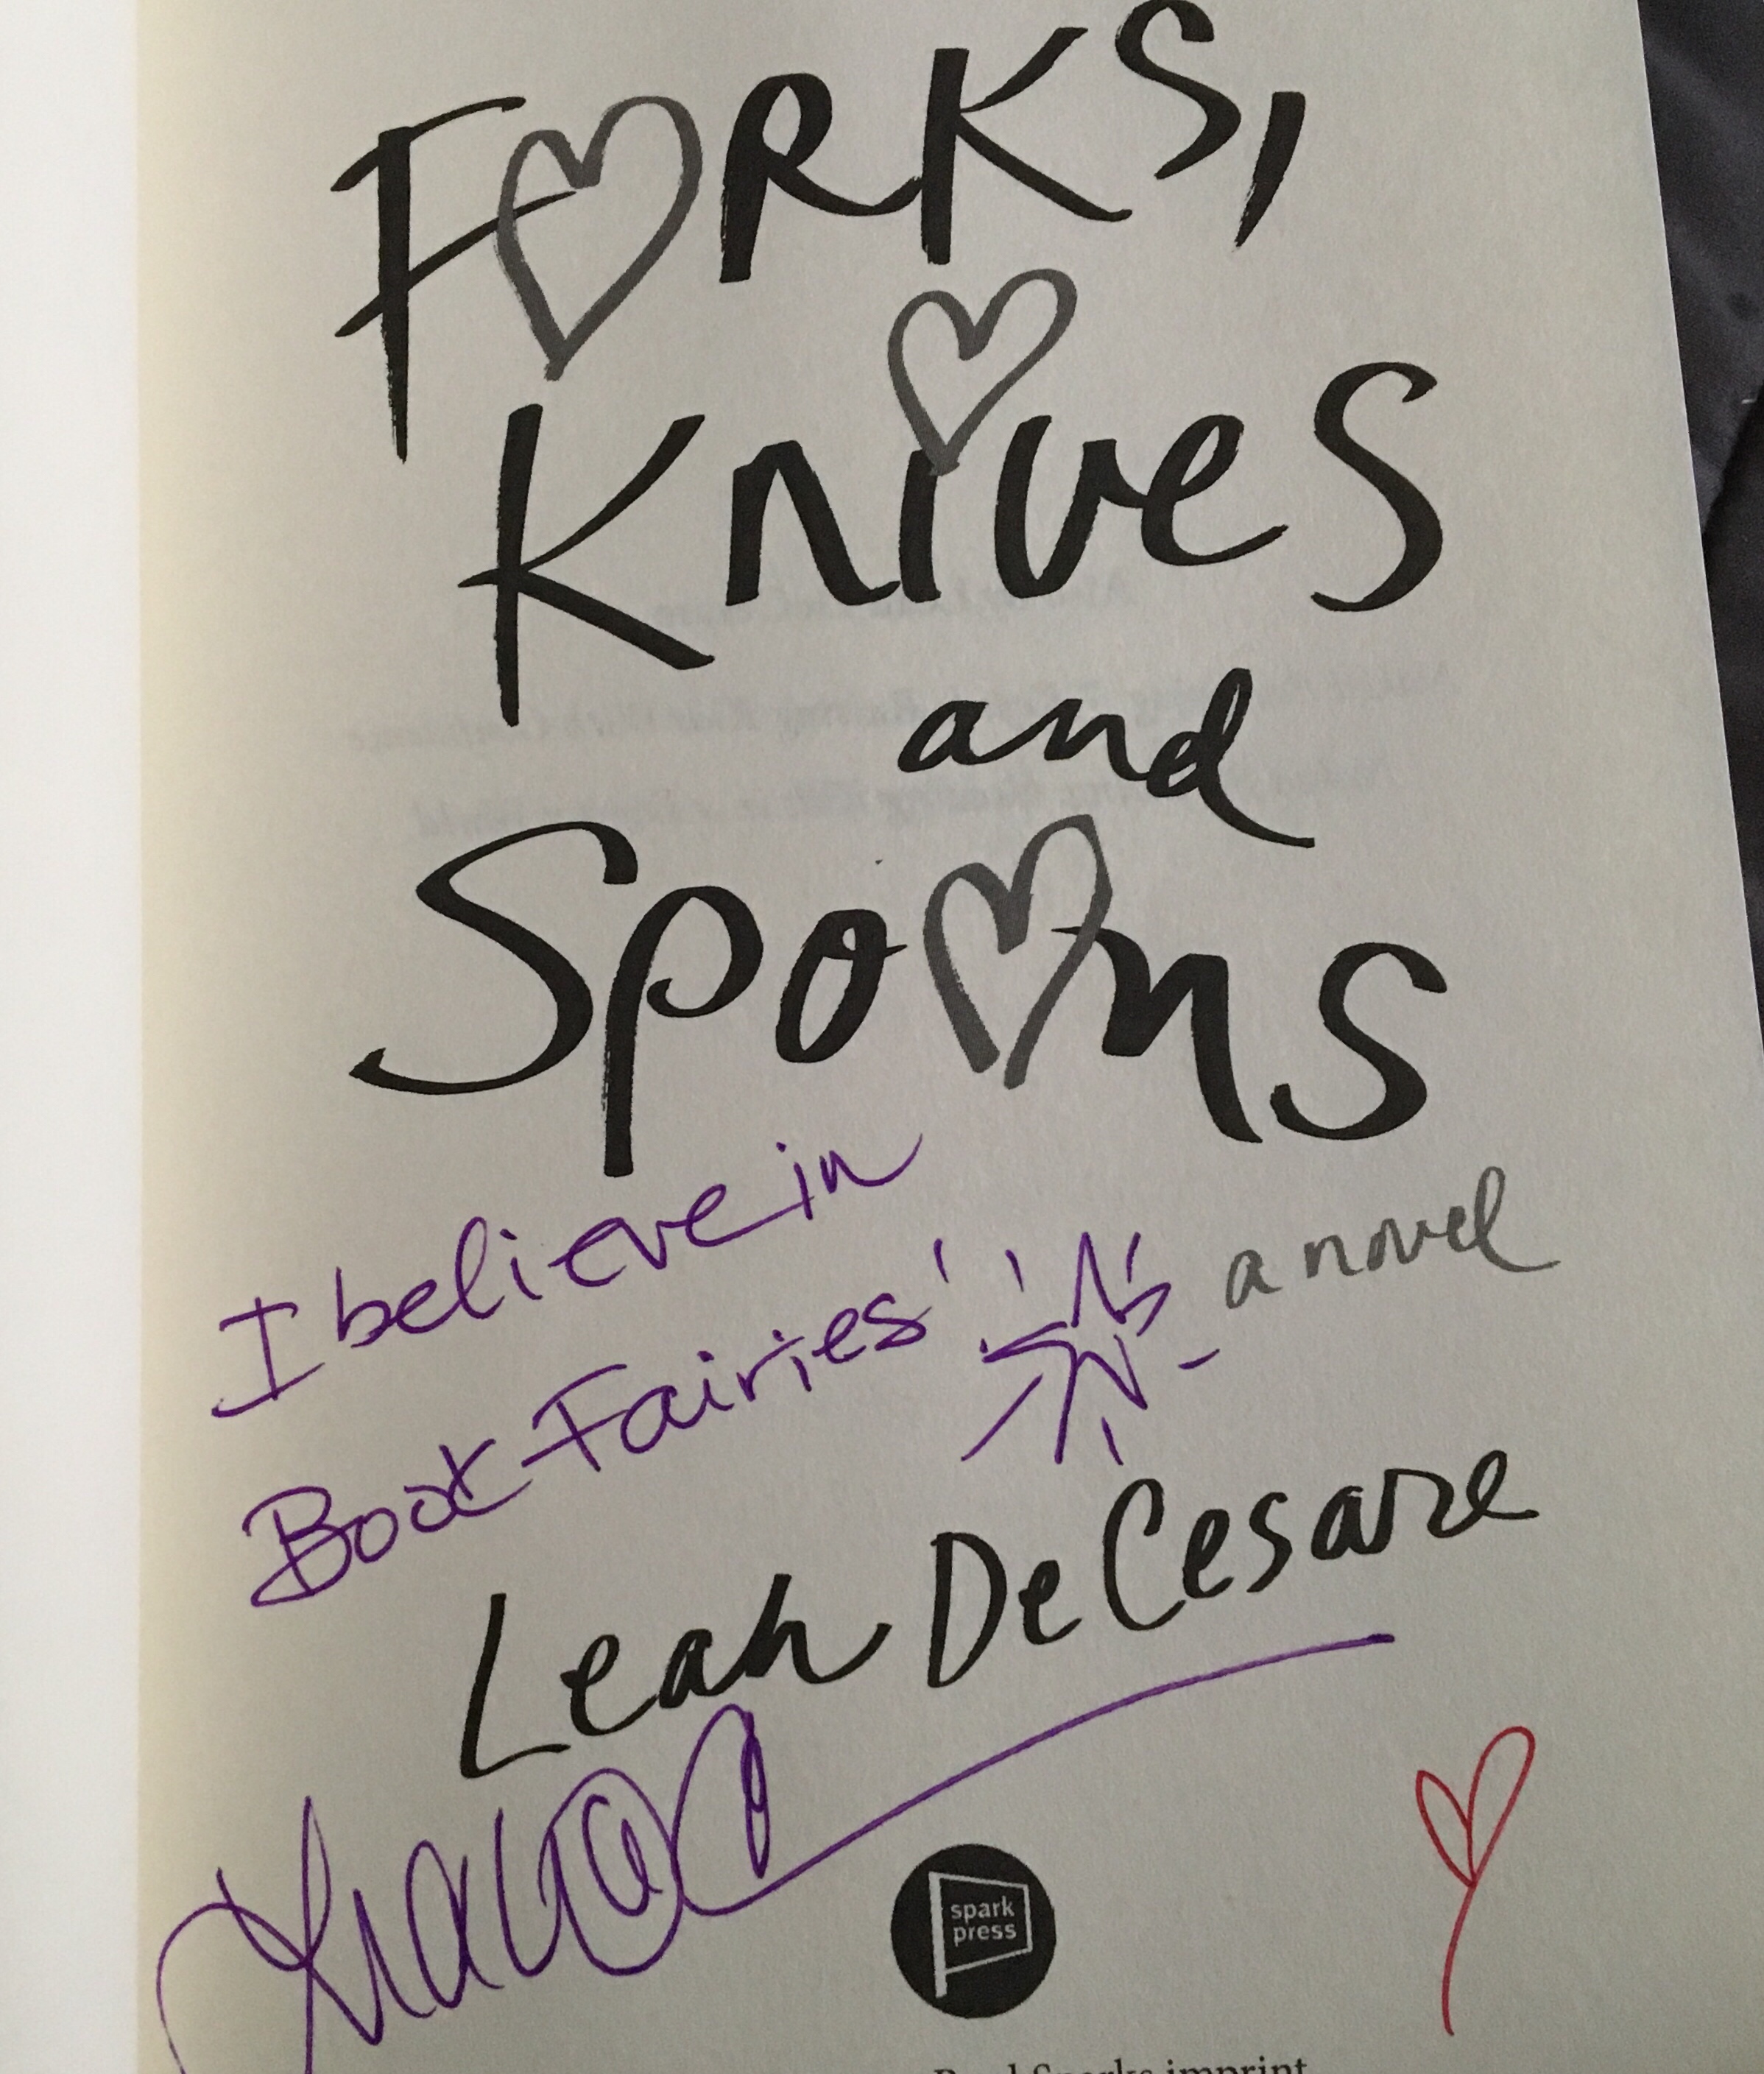 FORKS,
Knives
and
Spoons
I believe in
Book-Fairies!
a novel
Leah DeCesare
spark
press
imprint